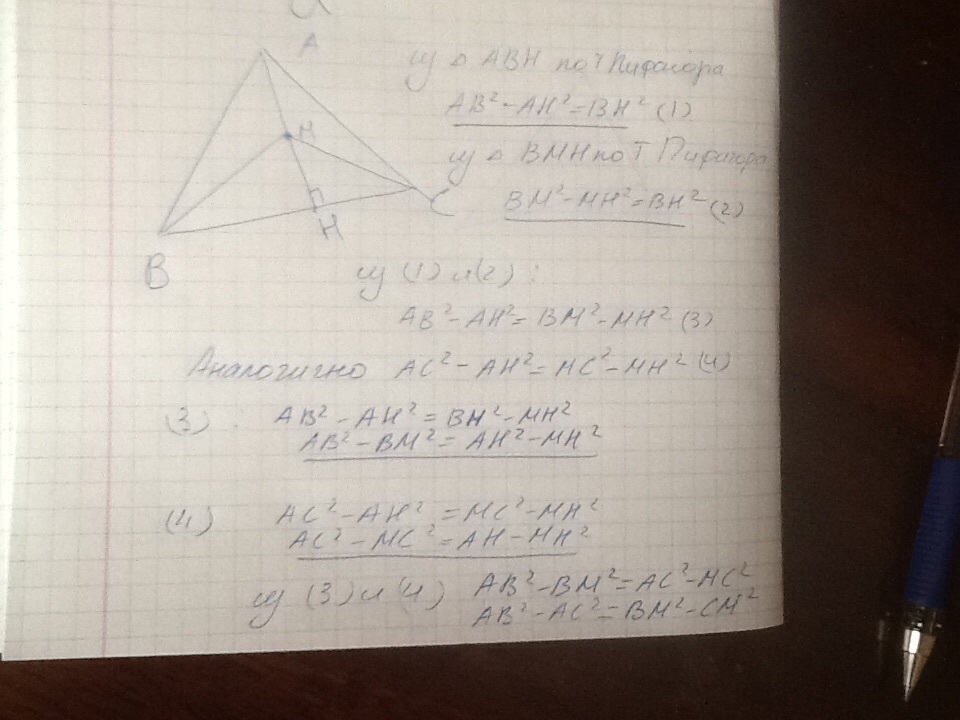 A
M
H
B
C
из △ ABH по т Пифагора
AB²-AH²=BH² (1)
из △ BMH по Т Пифагора
BM²-MH²=BH² (2)
из (1) и (2) :
AB²-AH²=BM²-MH² (3)
Аналогично AC²-AH²=MC²-MH² (4)
(3) : AB²-AH²=BM²-MH²
AB²-BM²=AH²-MH²
(4) AC²-AH²=MC²-MH²
AC²-MC²=AH-MH²
из (3) и (4) AB²-BM²=AC²-MC²
AB²-AC²=BM²-CM²